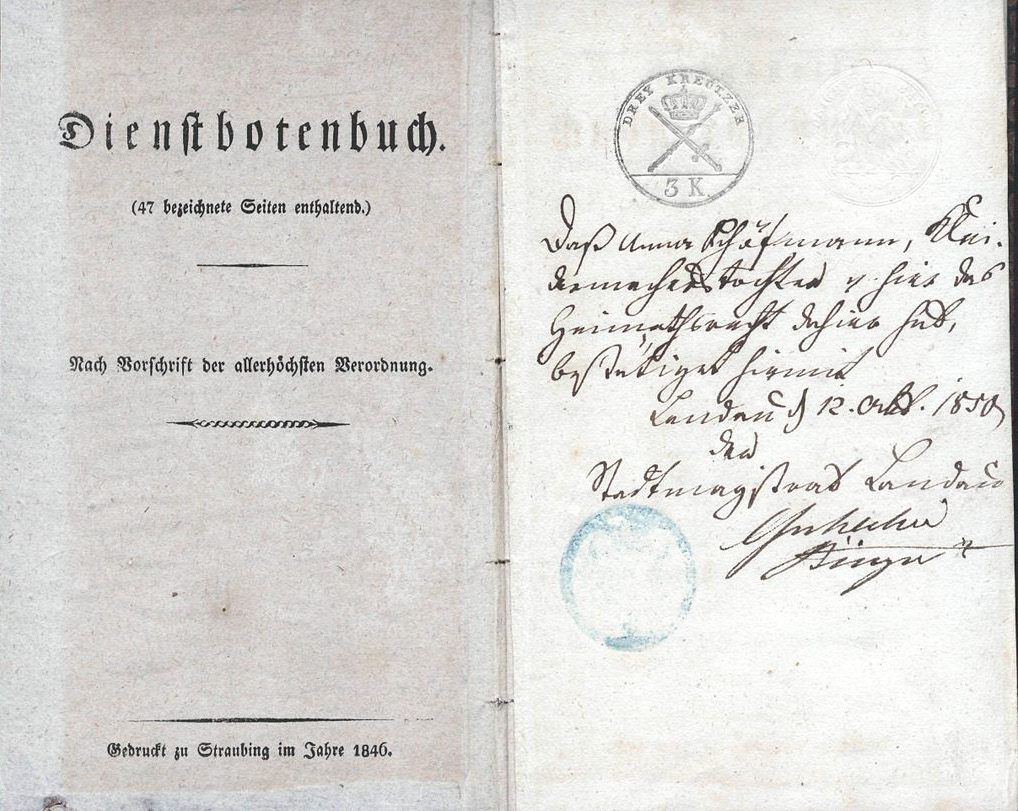 Dienstbotenbuch.
(47 bezeichnete Seiten enthaltend.)
Nach Vorschrift der allerhöchsten Verordnung.
Gedruckt zu Straubing im Jahre 1846.
DREY KREUTZER
3 K
Daß Anna, Klei-
dermachers tochter v. hier das
Heimathsrecht dahier hab,
bestätiget hiermit
Landau d 12. Okt. 1850
der
Stadtmagistrat Landau